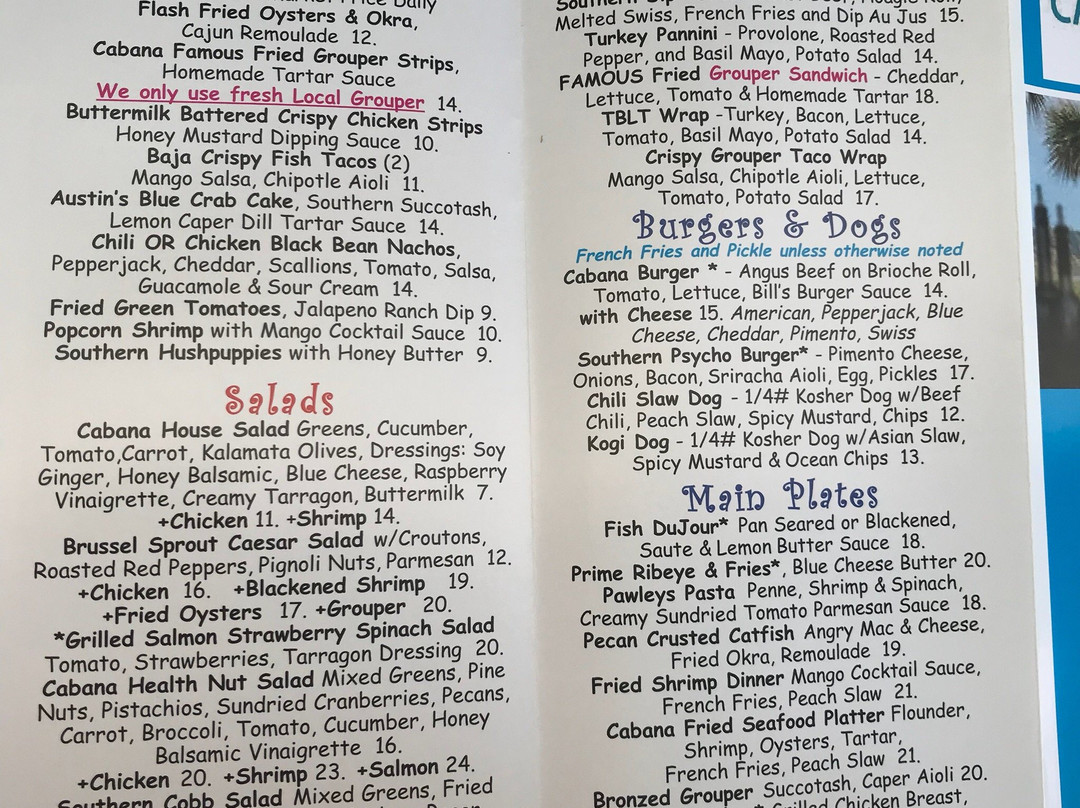 Price Daily
Flash Fried Oysters & Okra,
Cajun Remoulade 12.
Cabana Famous Fried Grouper Strips,
Homemade Tartar Sauce
We only use fresh Local Grouper 14.
Buttermilk Battered Crispy Chicken Strips
Honey Mustard Dipping Sauce 10.
Baja Crispy Fish Tacos (2)
Mango Salsa, Chipotle Aioli 11.
Austin's Blue Crab Cake, Southern Succotash,
Lemon Caper Dill Tartar Sauce 14.
Chili OR Chicken Black Bean Nachos,
Pepperjack, Cheddar, Scallions, Tomato, Salsa,
Guacamole & Sour Cream 14.
Fried Green Tomatoes, Jalapeno Ranch Dip 9.
Popcorn Shrimp with Mango Cocktail Sauce 10.
Southern Hushpuppies with Honey Butter 9.
Salads
Cabana House Salad Greens, Cucumber,
Tomato,Carrot, Kalamata Olives, Dressings: Soy
Ginger, Honey Balsamic, Blue Cheese, Raspberry
Vinaigrette, Creamy Tarragon, Buttermilk 7.
+Chicken 11. +Shrimp 14.
Brussel Sprout Caesar Salad w/Croutons,
Roasted Red Peppers, Pignoli Nuts, Parmesan 12.
+Chicken 16. +Blackened Shrimp 19.
+Fried Oysters 17. +Grouper 20.
*Grilled Salmon Strawberry Spinach Salad
Tomato, Strawberries, Tarragon Dressing 20.
Cabana Health Nut Salad Mixed Greens, Pine
Nuts, Pistachios, Sundried Cranberries, Pecans,
Carrot, Broccoli, Tomato, Cucumber, Honey
Balsamic Vinaigrette 16.
+Chicken 20. +Shrimp 23. +Salmon 24.
Southern Cobb Salad Mixed Greens, Fried
Southern Dip
Melted Swiss, French Fries and Dip Au Jus 15.
Turkey Pannini - Provolone, Roasted Red
Pepper, and Basil Mayo, Potato Salad 14.
FAMOUS Fried Grouper Sandwich - Cheddar,
Lettuce, Tomato & Homemade Tartar 18.
TBLT Wrap -Turkey, Bacon, Lettuce,
Tomato, Basil Mayo, Potato Salad 14.
Crispy Grouper Taco Wrap
Mango Salsa, Chipotle Aioli, Lettuce,
Tomato, Potato Salad 17.
Burgers & Dogs
French Fries and Pickle unless otherwise noted
Cabana Burger * - Angus Beef on Brioche Roll,
Tomato, Lettuce, Bill's Burger Sauce 14.
with Cheese 15. American, Pepperjack, Blue
Cheese, Cheddar, Pimento, Swiss
Southern Psycho Burger* - Pimento Cheese,
Onions, Bacon, Sriracha Aioli, Egg, Pickles 17.
Chili Slaw Dog - 1/4# Kosher Dog w/Beef
Chili, Peach Slaw, Spicy Mustard, Chips 12.
Kogi Dog - 1/4# Kosher Dog w/Asian Slaw,
Spicy Mustard & Ocean Chips 13.
Main Plates
Fish DuJour* Pan Seared or Blackened,
Saute & Lemon Butter Sauce 18.
Prime Ribeye & Fries*, Blue Cheese Butter 20.
Pawleys Pasta Penne, Shrimp & Spinach,
Creamy Sundried Tomato Parmesan Sauce 18.
Pecan Crusted Catfish Angry Mac & Cheese,
Fried Okra, Remoulade 19.
Fried Shrimp Dinner Mango Cocktail Sauce,
French Fries, Peach Slaw 21.
Cabana Fried Seafood Platter Flounder,
Shrimp, Oysters, Tartar,
French Fries, Peach Slaw 21.
Bronzed Grouper Succotash, Caper Aioli 20.
Grilled Chicken Breast,